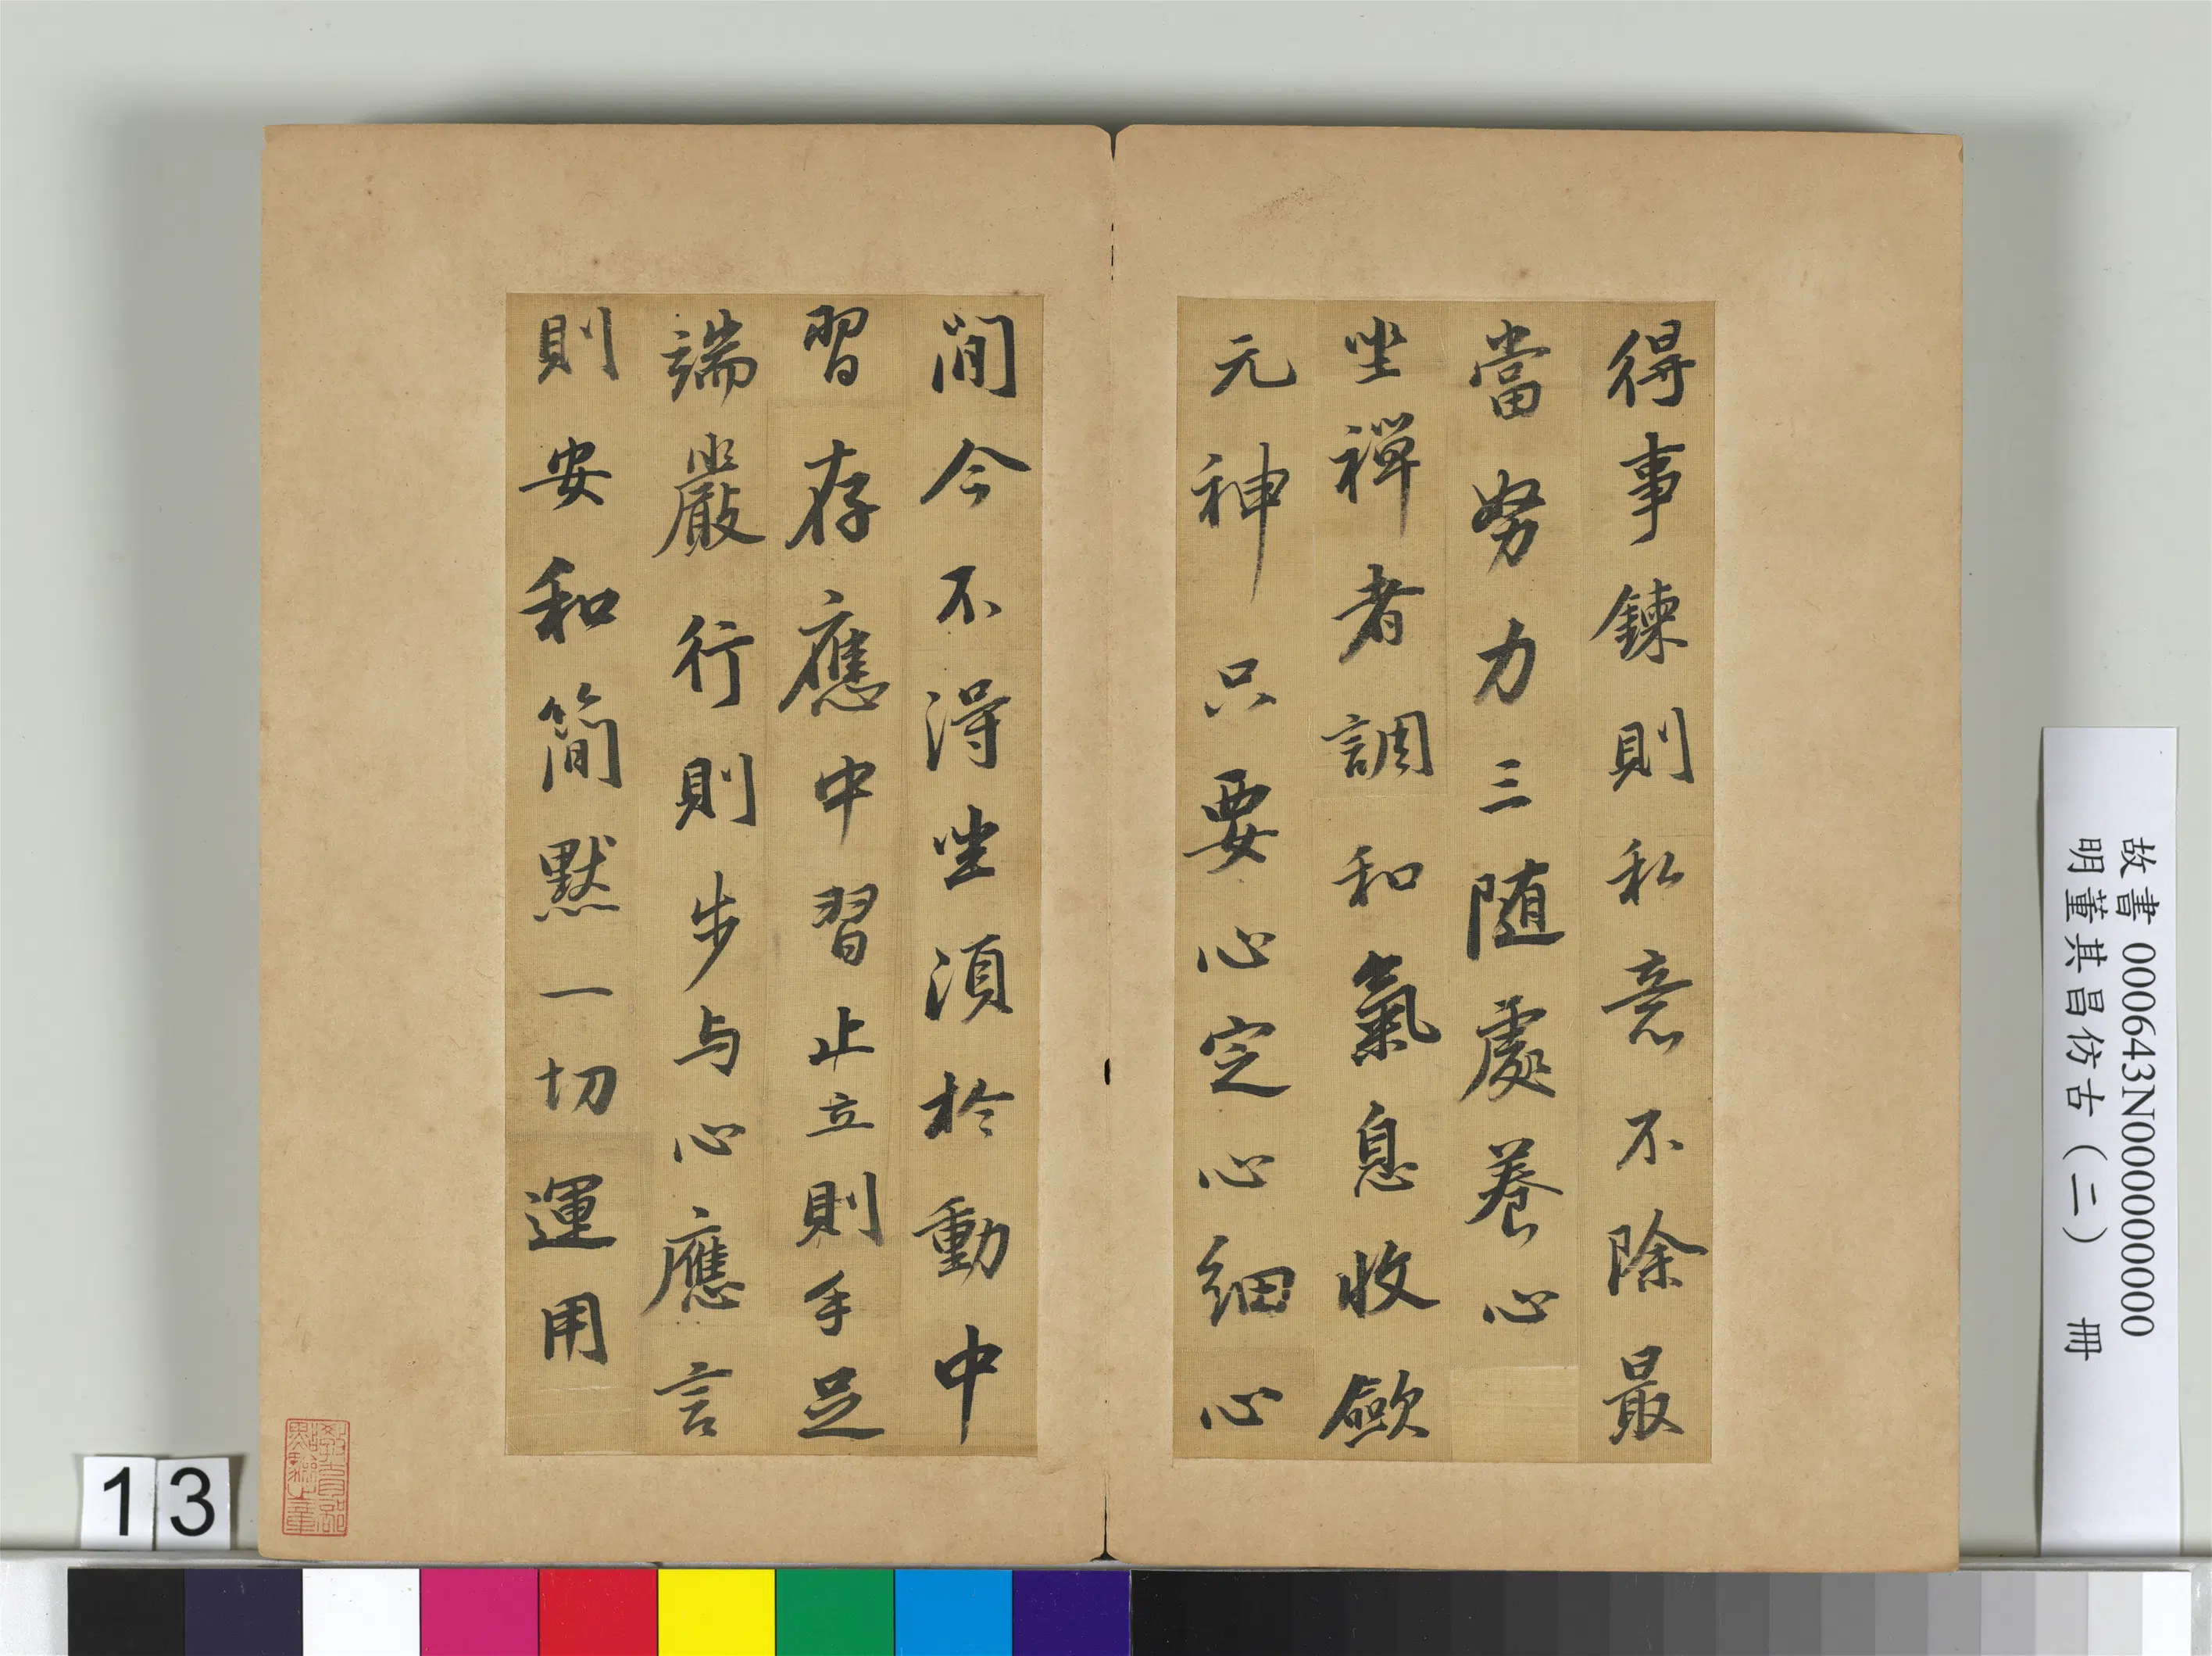 得事鍊則私意不除最
當努力三随處養心
坐禪者調和氣息收歛
元神只要心定心細心
閒今不得坐須於動中
習存應中習止立則手足
端嚴行則步与心應言
則安和簡默一切運用
故書000643N000000000
明董其昌仿古（二） 冊
13